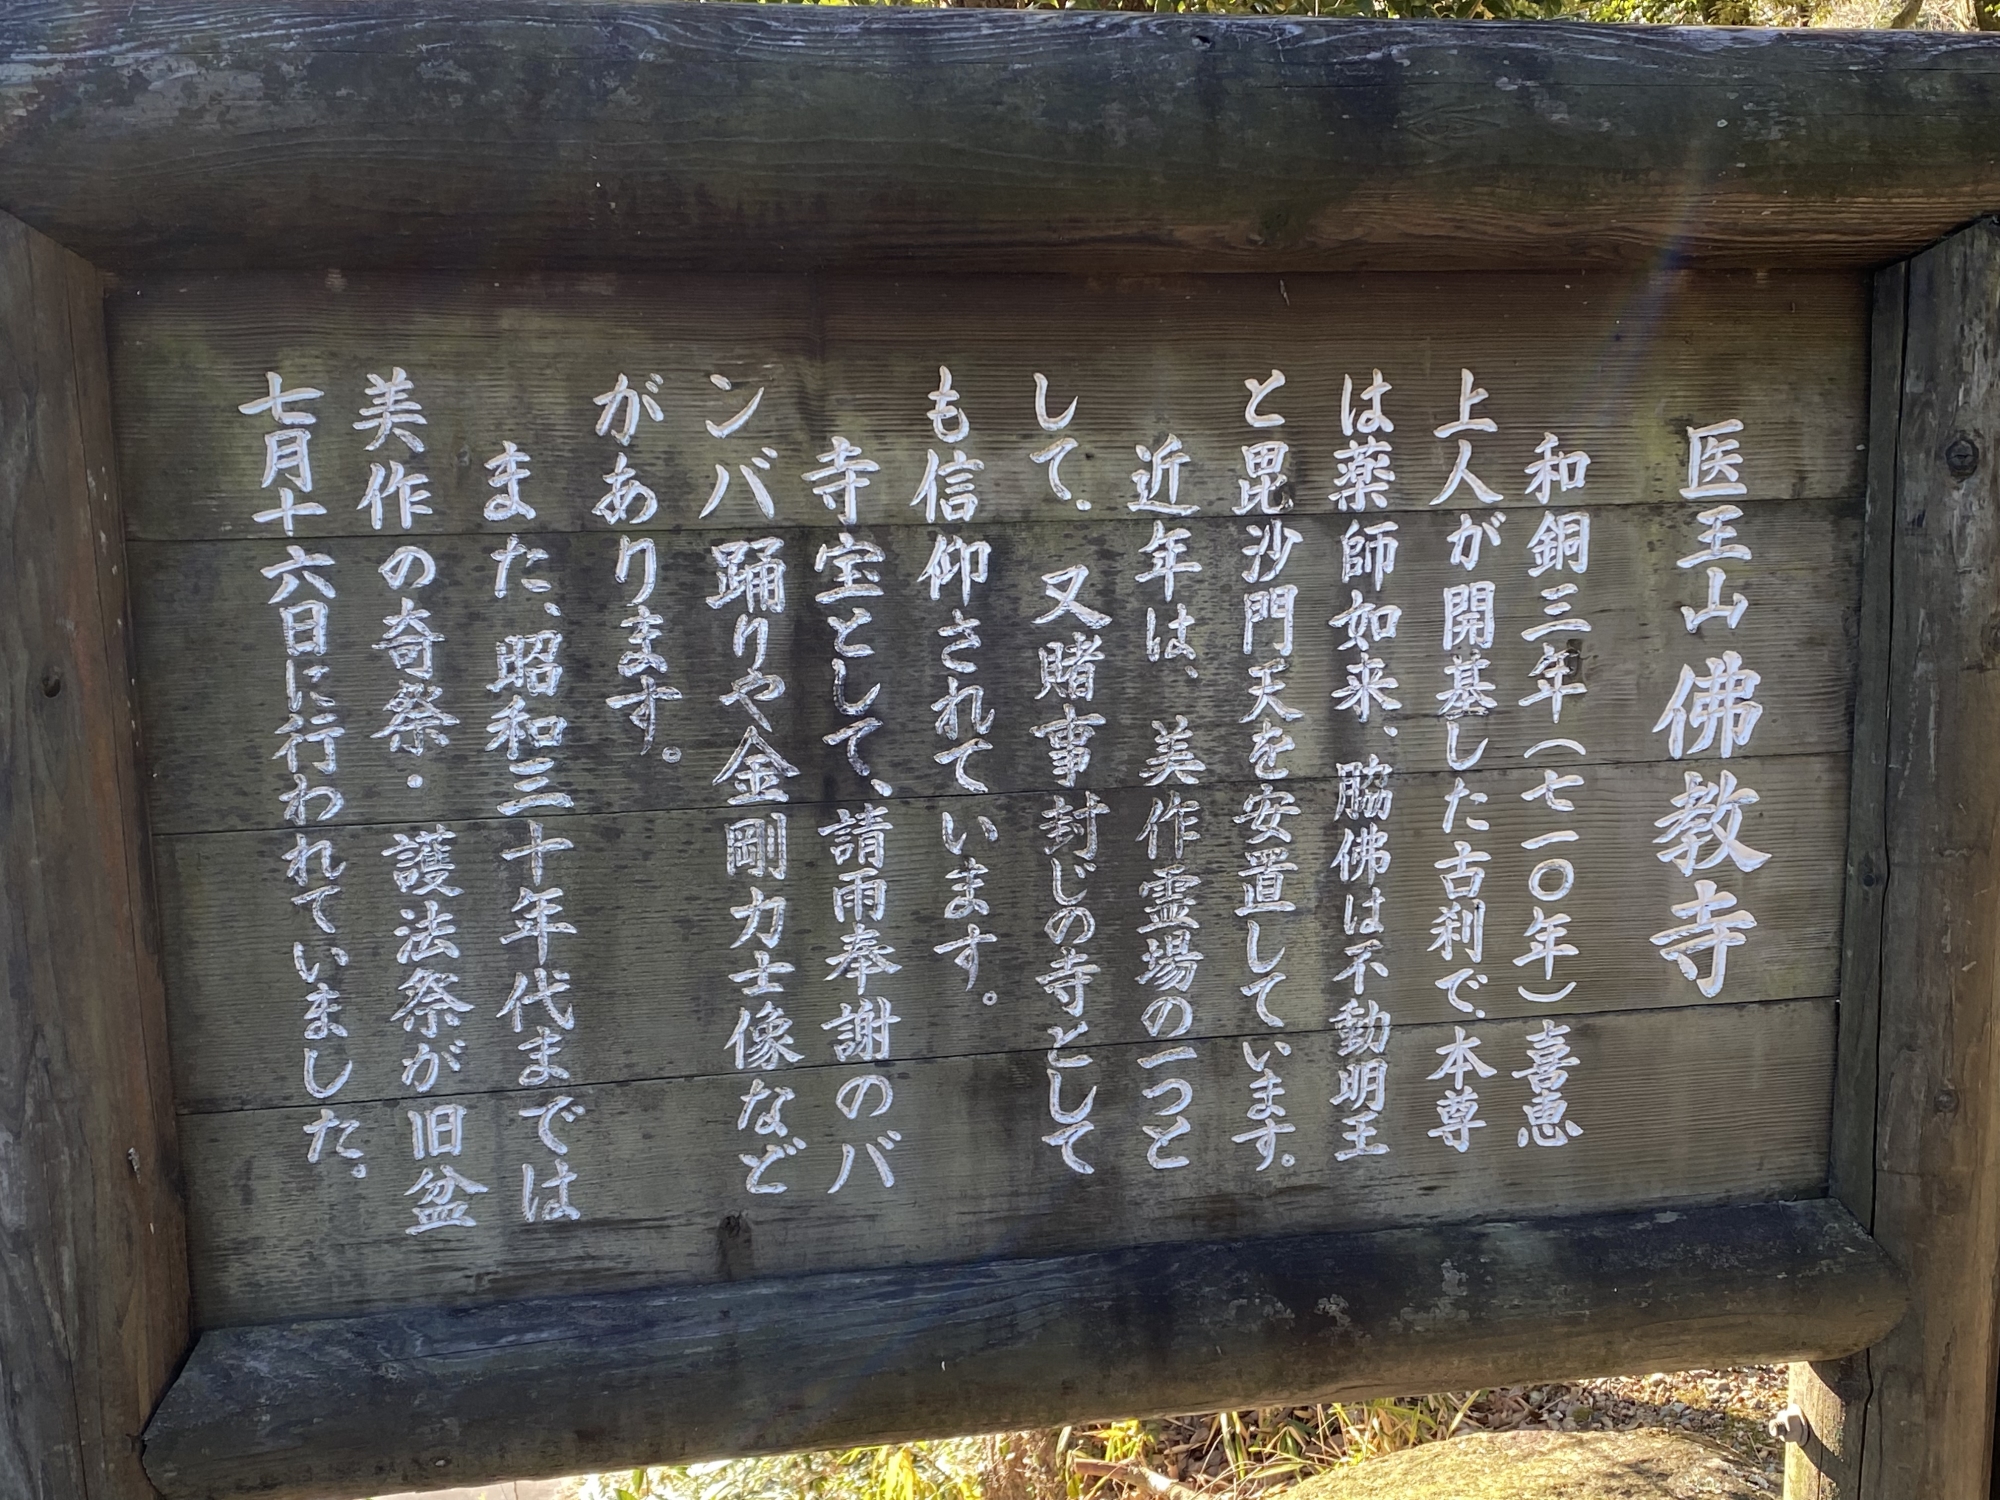 医王山佛教寺
和銅三年(七一〇年)喜恵
上人が開基した古刹で、本尊
は薬師如来、脇佛は不動明王
と毘沙門天を安置しています。
近年は、美作霊場の一つと
して、又賭事封じの寺として
も信仰されています。
寺宝として、請雨奉謝のバ
ンバ踊りや金剛力士像など
があります。
また、昭和三十年代までは
美作の奇祭・護法祭が旧盆
七月十六日に行われていました。